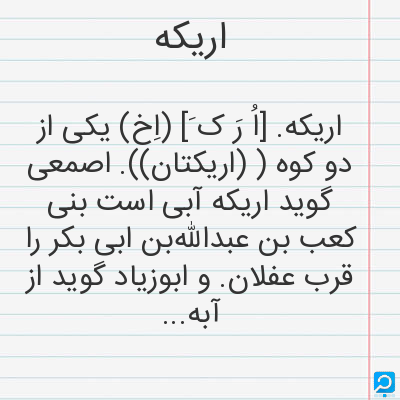 اریکه
اریکه. [اُ رَ ک َ] (اِخ) یکی از
دو کوه ( (اریکتان)). اصمعی
گوید اریکه آبی است بنی
کعب بن عبدالله‌بن ابی بکر را
قرب عفلان. و ابوزیاد گوید از
آبه...